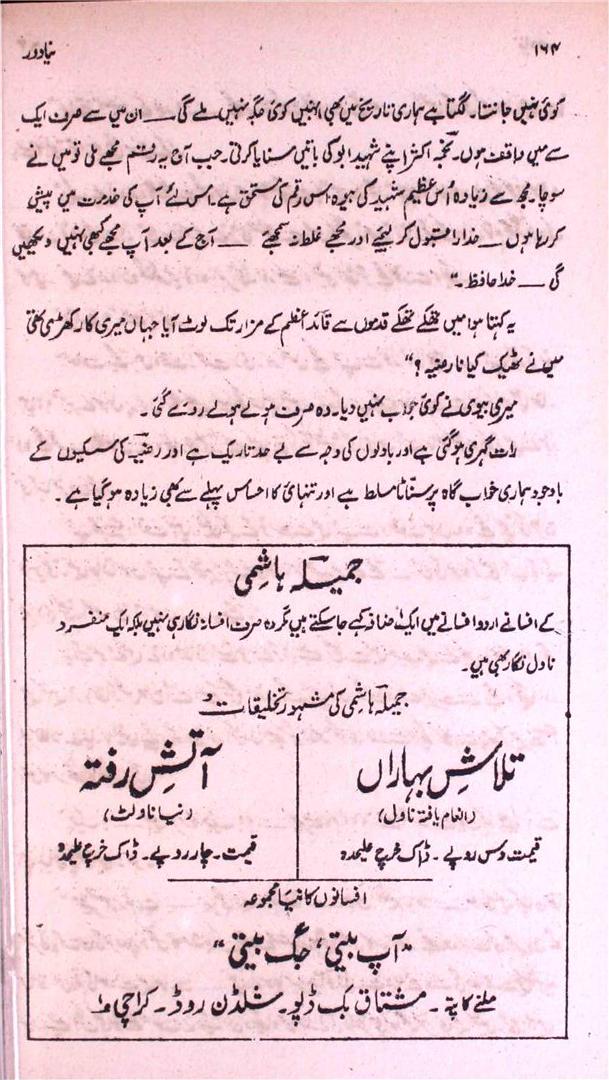 ۱۶۴
نیا دور
کوئی نہیں جانتا۔ لگتا ہے ہماری تاریخ میں بھی انہیں کوئی جگہ نہیں ملے گی ــــ ان میں سے صرف ایک
سے میں واقف ہوں۔ نجمہ اکثر اپنے شہید ابو کی باتیں سنایا کرتی۔ جب آج یہ رقم مجھے ملی تو میں نے
سوچا۔ مجھ سے زیادہ اُس عظیم شہید کی بیوہ اس رقم کی مستحق ہے۔ اس لئے آپ کی خدمت میں پیش
کر رہا ہوں ــــ خدارا قبول کر لیجئے اور مجھے غلط نہ سمجھئے ــــ آج کے بعد آپ مجھے کبھی نہیں دیکھیں
گی ــــ خدا حافظ۔"
یہ کہتا ہوا میں تھکے تھکے قدموں سے قائد اعظم کے مزار تک لوٹ آیا جہاں میری کار کھڑی تھی
میں نے ٹھیک کیا نا رضیہ ؟"
میری بیوی نے کوئی جواب نہیں دیا۔ وہ صرف ہولے ہولے روئے گئی۔
رات گہری ہو گئی ہے اور بادلوں کی وجہ سے بے حد تاریک ہے اور رضیہ کی سسکیوں کے
باوجود ہماری خواب گاہ پر سناٹا مسلط ہے اور تنہائی کا احساس پہلے سے بھی زیادہ ہو گیا ہے۔
جمیلہ ہاشمی
کے افسانے اردو افسانے میں ایک اضافہ کہے جا سکتے ہیں مگر وہ صرف افسانہ نگار ہی نہیں بلکہ ایک منفرد
ناول نگار بھی ہیں۔
جمیلہ ہاشمی کی مشہور تخلیقات
تلاشِ بہاراں
(انعام یافتہ ناول)
قیمت دس روپے۔ ڈاک خرچ علیحدہ
آتشِ رفتہ
(نیا ناولٹ)
قیمت۔ چار روپے۔ ڈاک خرچ علیحدہ
افسانوں کا نیا مجموعہ
"آپ بیتی، جگ بیتی"
ملنے کا پتہ۔ مشتاق بک ڈپو۔ شلڈن روڈ۔ کراچی ۱